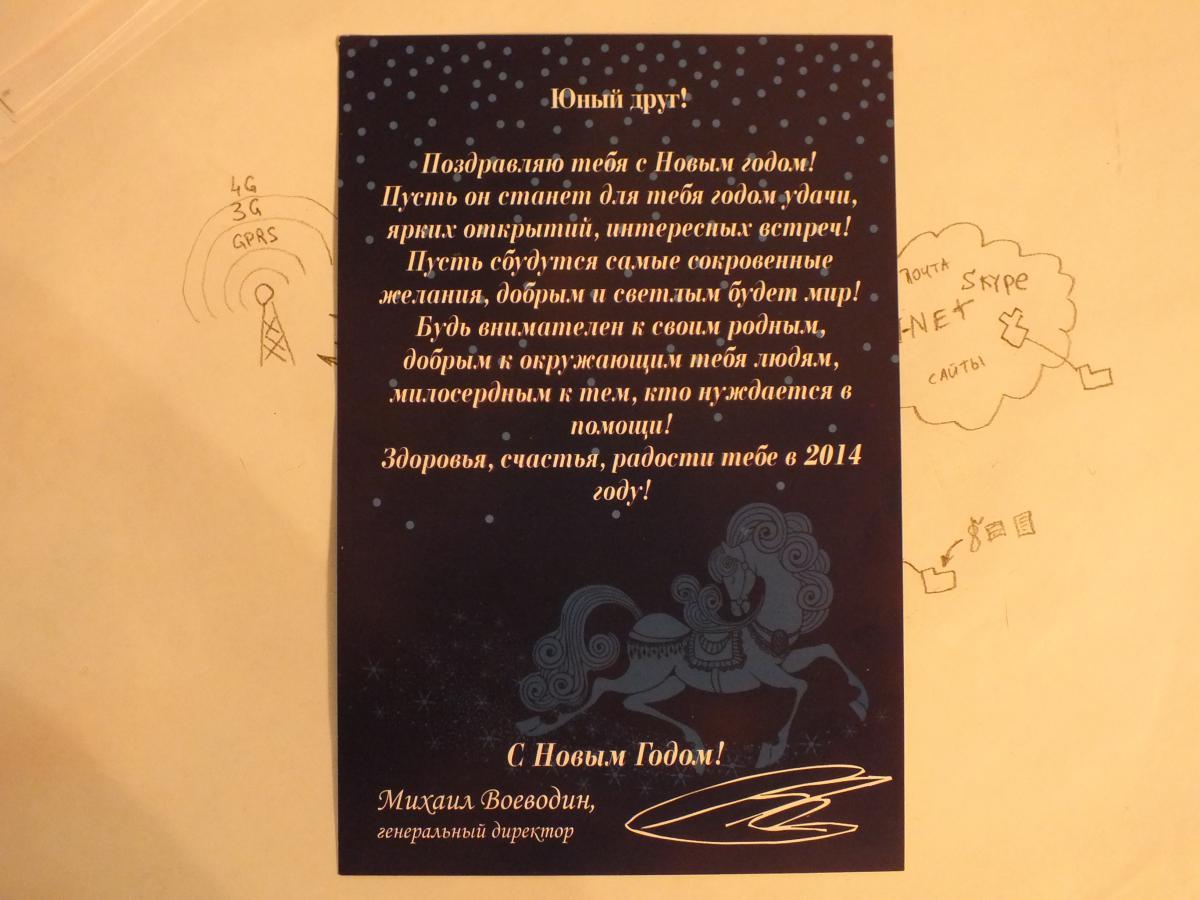 Юный друг!
Поздравляю тебя с Новым годом!
Пусть он станет для тебя годом удачи,
ярких открытий, интересных встреч!
Пусть сбудутся самые сокровенные
желания, добрым и светлым будет мир!
Будь внимателен к своим родным,
добрым к окружающим тебя людям,
милосердным к тем, кто нуждается в
помощи!
Здоровья, счастья, радости тебе в 2014
году!
С Новым Годом!
Михаил Воеводин,
генеральный директор
4G
3G
GPRS
ПОЧТА
SKYPE
-NET
САЙТЫ